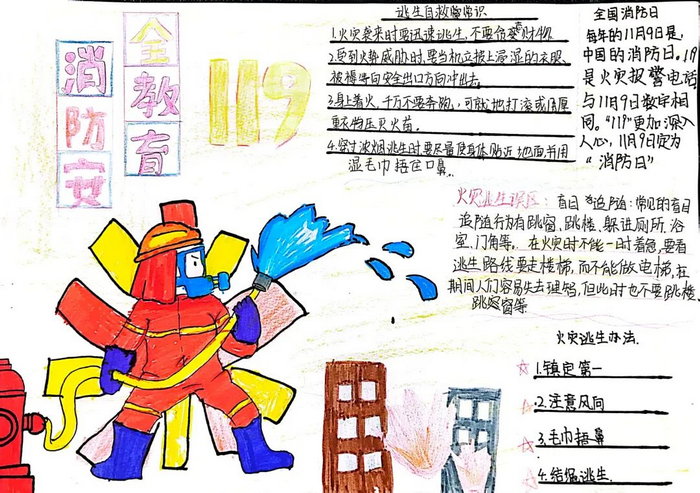 消防安
全教育
119
逃生自救常识
1.火灾袭来时要迅速逃生,不要贪婪财物
2.受到火势威胁时,要当机立披上浸湿的衣服
被褥等向安全出口方向冲出去。
3.身上着火,千万不要奔跑,可就地打滚或用厚
重衣物压灭火苗。
4.穿过浓烟逃生时要尽量使身体贴近地面并用
湿毛巾捂住口鼻.
全国消防日
每年的11月9日是,
中国的消防日。119
是火灾报警电话
与11月9日数字相
同。"119"更加深入
人心,11月9日定为
"消防日"
火灾逃生误区:盲目追随:常见的盲目
追随行为有跳窗、跳楼、躲进厕所、浴
室、门角等。在火灾时不能一时着急,要看
逃生路线要走楼梯,而不能做电梯,在
期间人们容易失去理智,但此时也不要跳楼,
跳窗等
火灾逃生办法.
1.镇定第一
2.注意风向
3.毛巾捂鼻
4.结绳逃生